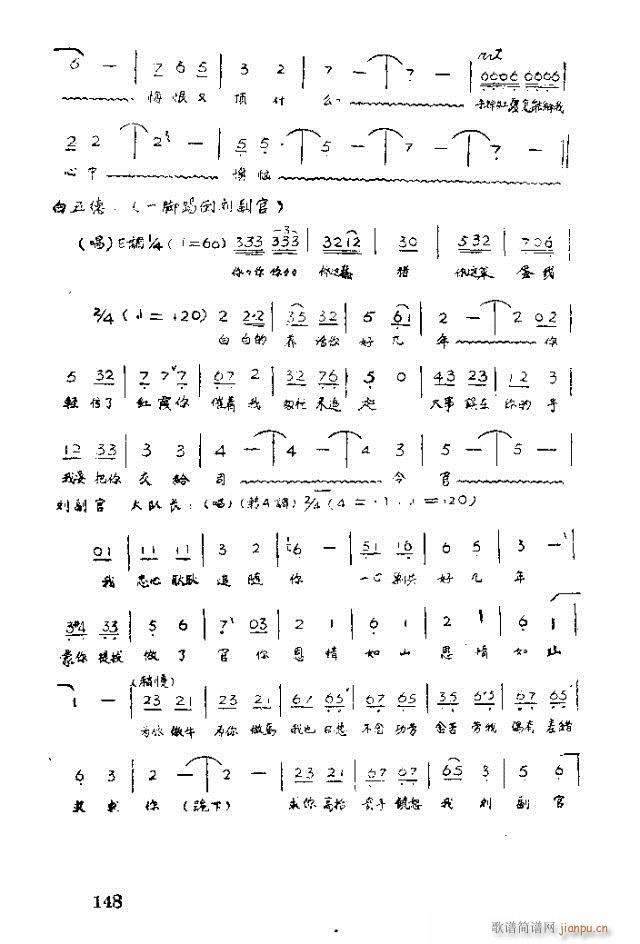 6 — | 7 6 5 | 3 2 | 7 — | 7 — |
悔恨又 顶什么
2 2 | 2 — | 5 5 · | 5 — | 7 — |
心中 懊恼
白正德:(一脚踢倒刘副官)
(唱)E调1/4(♩=60) 333 333 | 3212 | 30 | 532 | 706 |
你这蠢 猪 你这笨 蛋 我
2/4(♩=120) 2 2·2 | 35 32 | 5 61 | 2 — | 2 02 |
白白的 养活你 好几 年 你
5 32 | 7 7 7 | 67 2 | 32 76 | 5 0 | 43 23 | 12 3 |
轻信了 红霞你 催着我 匆忙来追赶 大事误在 你的手
12 33 | 3 3 | 4 — | 4 — | 4 3 | 5 — | 5 — |
我要把你 交给 司 令官
刘副官 大队长:(唱)(转A调)2/4(4=1 ♩=120)
01 | 11 11 | 3 2 | 6 — | 51 16 | 6 5 | 3 — |
我 忠心耿耿 追随 你 一心剿共 好几 年
334 33 | 5 6 | 7 03 | 2 1 | 6 1 | 2 1 | 6 1
靠你提我 做了 官 你 恩情 如山 恩情 如山
(稍慢)
1 — | 23 21 | 23 21 | 67 65 | 67 65 | 35 65 | 67 65 |
为你做牛 为你做马 我也甘愿 不念功劳 念苦劳我 偶有差错
6 3 | 2 — | 2 — | 23 21 | 67 67 | 65 3 | 5 6
求 你(跪下) 求你高抬 贵手饶恕 我 刘 副官
148
歌谱简谱网
jianpu.cn